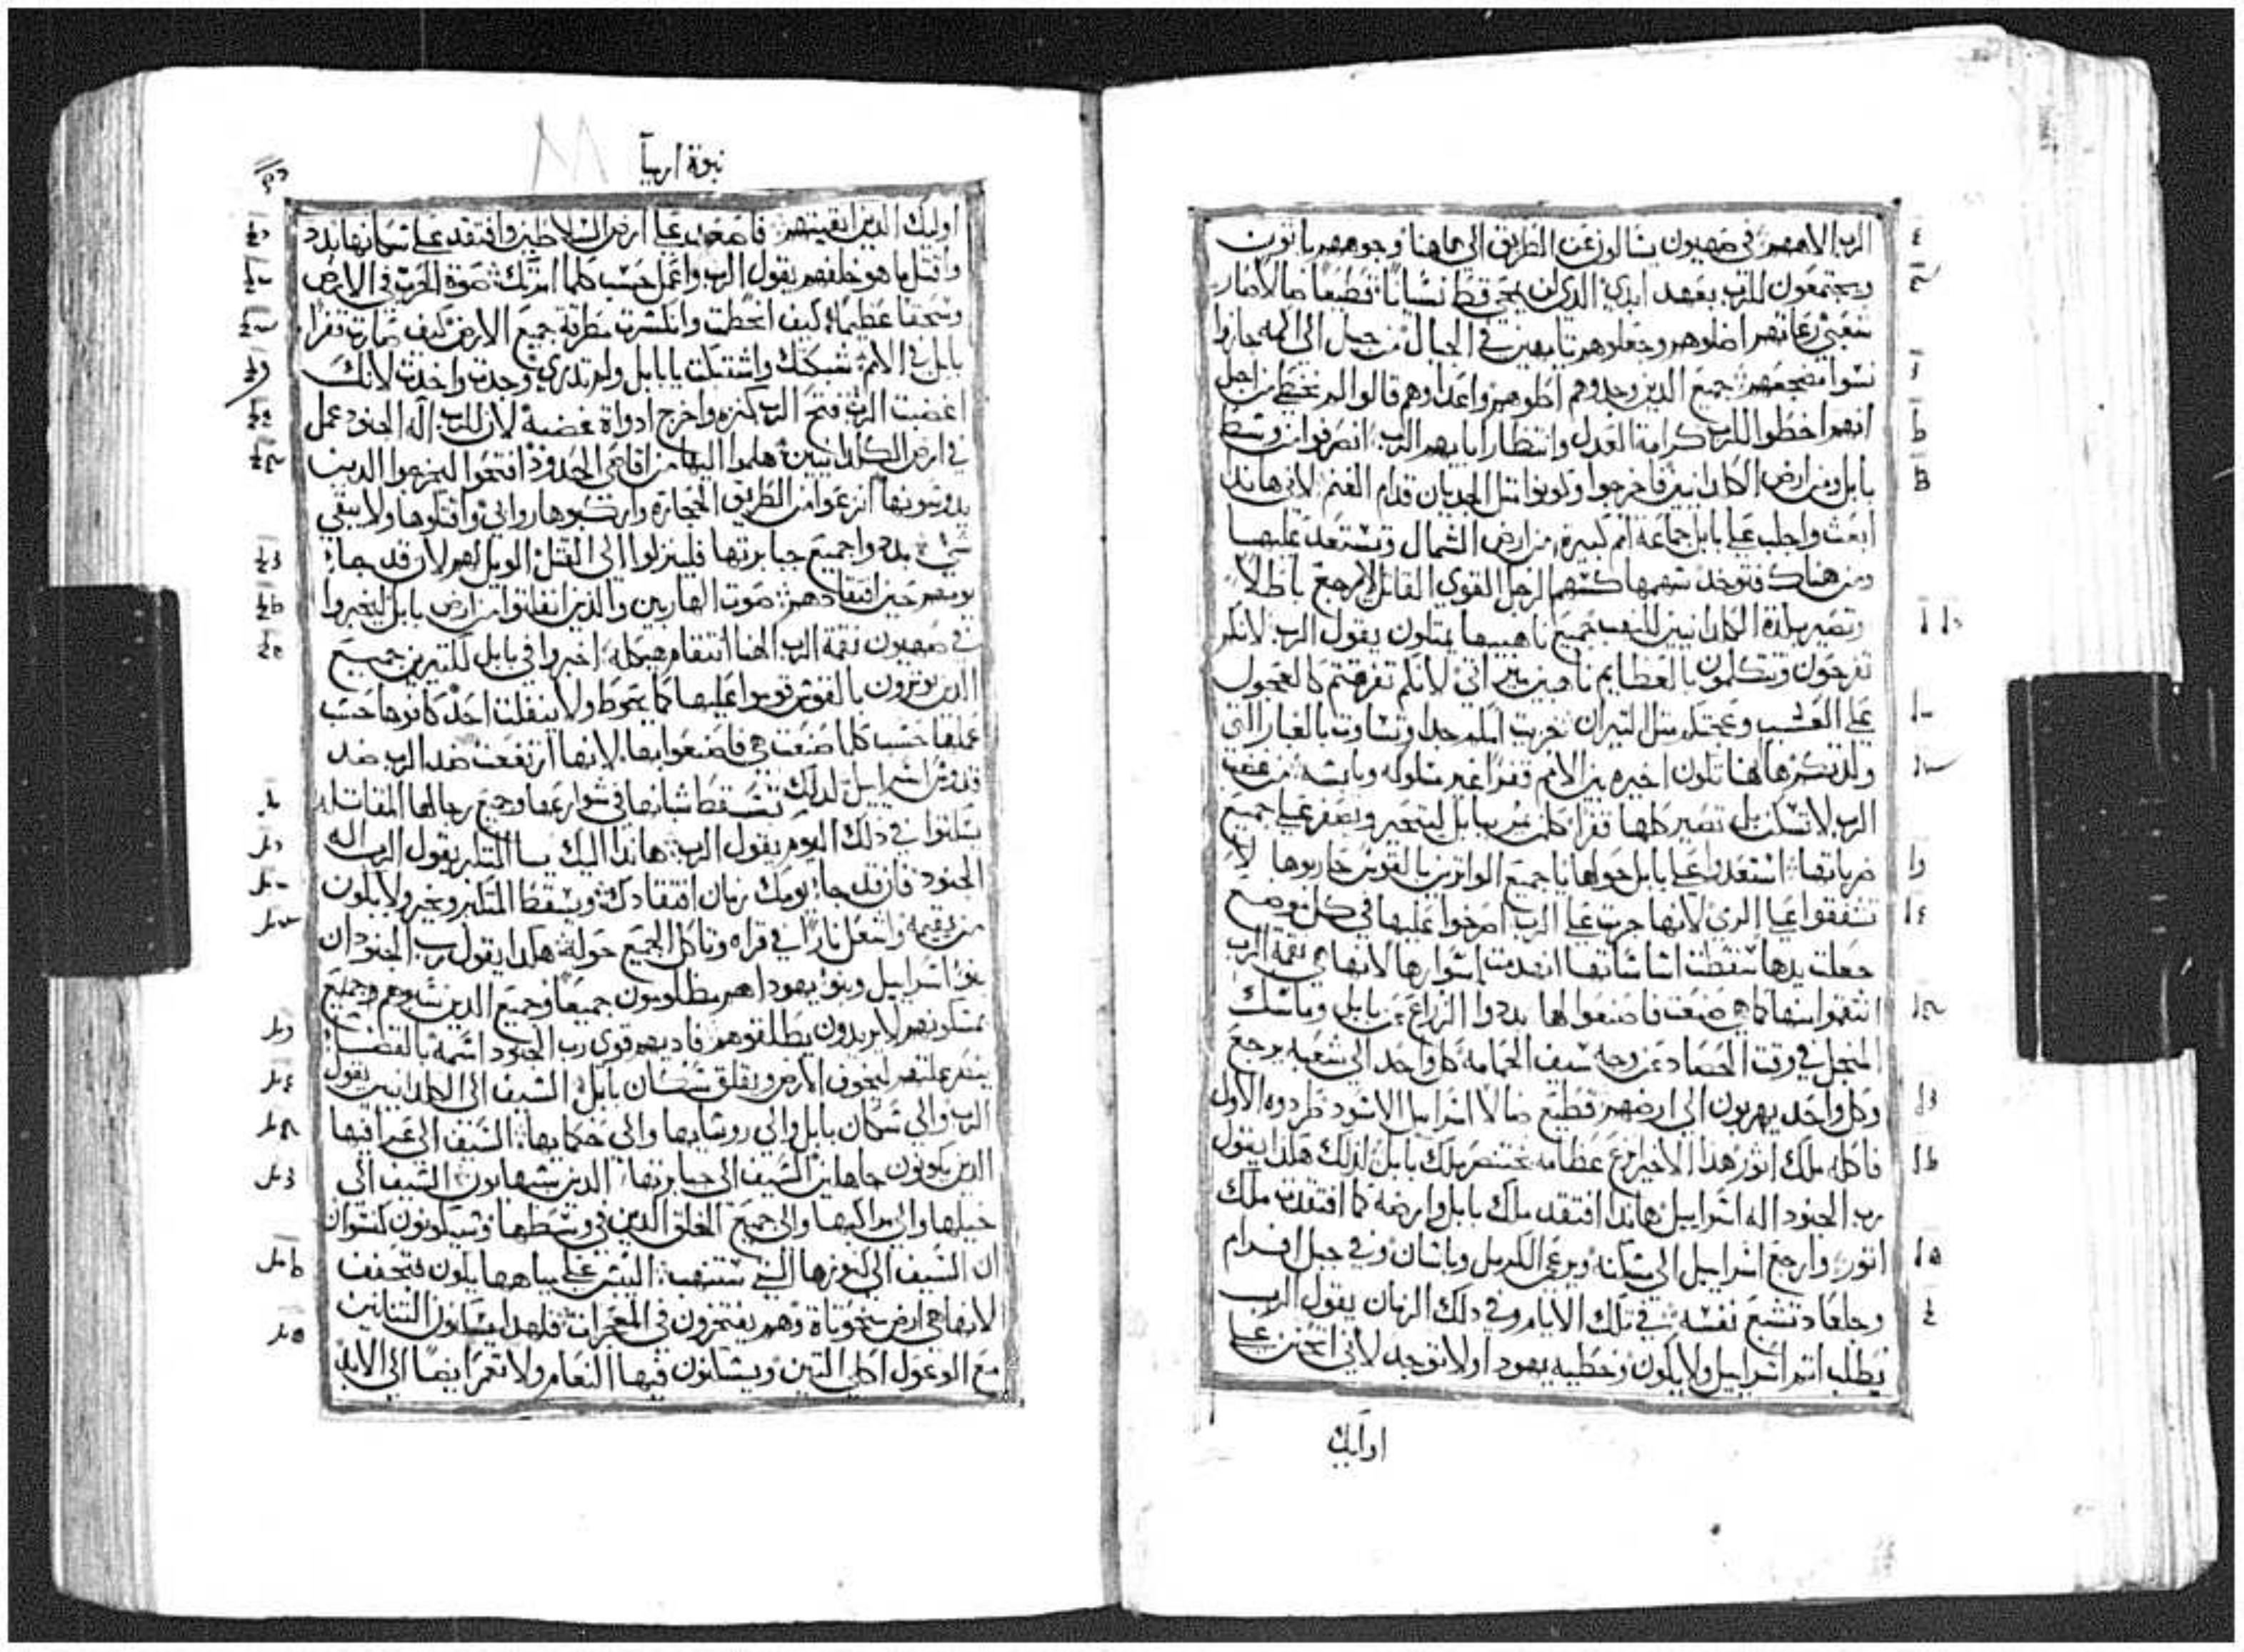 الرب الاههم في صهيون يسالون عن الطريق الى هاهنا وجوههم ياتون
ويجتمعون للرب بعهد ابدي الذي لن يمحى قط نسيانا قطيعا ضالا صار
شعبي رعاتهم اضلوهم وجعلوهم تايهين في الجبال من جبل الى اكمه جازوا
نسوا مضجعهم جميع الدين وجدوهم اكلوهم واعداوهم قالوا لم نخطي من اجل
انهم اخطوا للرب كرامة العدل وانتظار ابايهم الرب انصرفوا من وسط
بابل ومن ارض الكلدانيين فاخرجوا وكونوا مثل الجديان قدام الغنم لاني هاندا
ابعث واجلب على بابل جماعة امم كبيرة من ارض الشمال وتستعد عليها
ومن هناك فتوخد سهمها كسهم الرجل القوي القاتل لا يرجع باطلا
وتصير بلدة الكلدانيين للنهب جميع ناهبيها يمتلون يقول الرب لانكم
تفرحون وتتكلمون بالعظايم ناهبين ميراثي لانكم تفرقتم كالعجول
على العشب وعجتم مثل الثيران خزيت امكم جدا وتساوت بالغبار التي
ولدتكم هاهنا تكون اخيره بين الامم قفرا غير مسلوكه ويابسه من غضب
الرب لا تسكن بل تصير كلها قفرا كل من يمر ببابل يتحير ويصفر على جميع
ضرباتها استعدوا على بابل حولها يا جميع الواترين بالقوس حاربوها لا
تشفقوا على الرمي لانها جرت على الرب اصرخوا عليها في كل موضع
جعلت يدها سقطت اساساتها انهدمت اسوارها لانها هي نقمة الرب
انتقموا منها كما هي صنعت فاصنعوا لها بددوا الزراع من بابل وماسك
المنجل في وقت الحصاد عن وجه سيف الحمامه كل واحد الى شعبه يرجع
وكل واحد يهربون الى ارضهم قطيع ضالا اسراييل الاسود طردوه الاول
فاكله ملك اثور هدا الاخير نزع عظامه بختنصر ملك بابل لدلك هكدا يقول
رب الجنود اله اسراييل هاندا افتقد ملك بابل وارضه كما افتقدت ملك
اثور وارجع اسراييل الى مسكنه ويرعى الكرمل وباشان وفي جبل افرام
وجلعاد تشبع نفسه في تلك الايام وفي دلك الزمان يقول الرب
يطلب اثم اسراييل ولا يكون وخطية يهودا ولا توجد لاني اتحنن على
اوليك
نبوة ارميا
اوليك الدين ابقيتهم فاصعد على ارض السلاطين وافتقد على سكانها بدد
واقتل ما هو خلفهم يقول الرب واعمل حسب كلما امرتك صوت الحرب في الارض
وسحقا عظيما كيف انحطت وانكسرت مطرقة جميع الارض كيف صارت قفرا
بابل في الامم شبكتك واشتبكت يا بابل ولم تدري وجدت واخدت لانك
اغضبت الرب فتح الرب كنزه واخرج ادواة غضبه لان للرب اله الجنود عمل
في ارض الكلدانيين هلموا اليها من اقاصي الحدود افتحوا ليخرجوا الدين
يدوسونها انزعوا من الطريق الحجارة واركبوها روابي واقتلوها ولا يبقى
شي بددوا جميع جبابرتها فلينزلوا الى القتل الويل لهم لان قد جا
يومهم حين افتقادهم صوت الهاربين والدين انفلتوا من ارض بابل ليخبروا
في صهيون نقمة الرب الهنا انتقام هيكله اخبروا في بابل لكثيرين جميع
الدين يوترون بالقوس قوموا عليها كما يحوط ولا ينفلت احد كافوها حسب
عملها حسب كلما صنعت هي فاصنعوا بها لانها ارتفعت ضد الرب ضد
قدوس اسراييل لدلك تسقط شبانها في شوارعها وجميع رجالها المقاتله
يسكتوا في دلك اليوم يقول الرب هاندا اليك يا المتكبر يقول الرب اله
الجنود فان قد جا يومك زمان افتقادك ويسقط المتكبر ويخر ولا يكون
من يقيمه واشعل نارا في قراه وتاكل الجميع حوله هكدا يقول رب الجنود ان
بنو اسراييل وبنو يهودا هم مظلومون جميعا وجميع الدين سبوهم وجميع
يمسكونهم لا يريدون يطلقوهم فاديهم قوي رب الجنود اسمه بالقضا
ينتقم عليهم ليخوف الارض ويقلق سكان بابل السيف الى الكلدانيين يقول
الرب والى سكان بابل والى روسايها والى حكمايها السيف الى عرافيها
الدين يكونون جاهلين السيف الى جبابرتها الدين يشهابون السيف الى
خيلها والى مراكبها والى جميع الخلق الدين في وسطها وسيكونون كنسوان
ان السيف الى كنوزها التي ستنهب اليبس على مياهها يكون فتجفف
لانها هي ارض منحوتاة وهم يفتخرون في المعجزات فلهدا يسكنون التنانين
مع الوعول اكلي التين ويسكنون فيها النعام ولا تعمر ايضا الى الابد